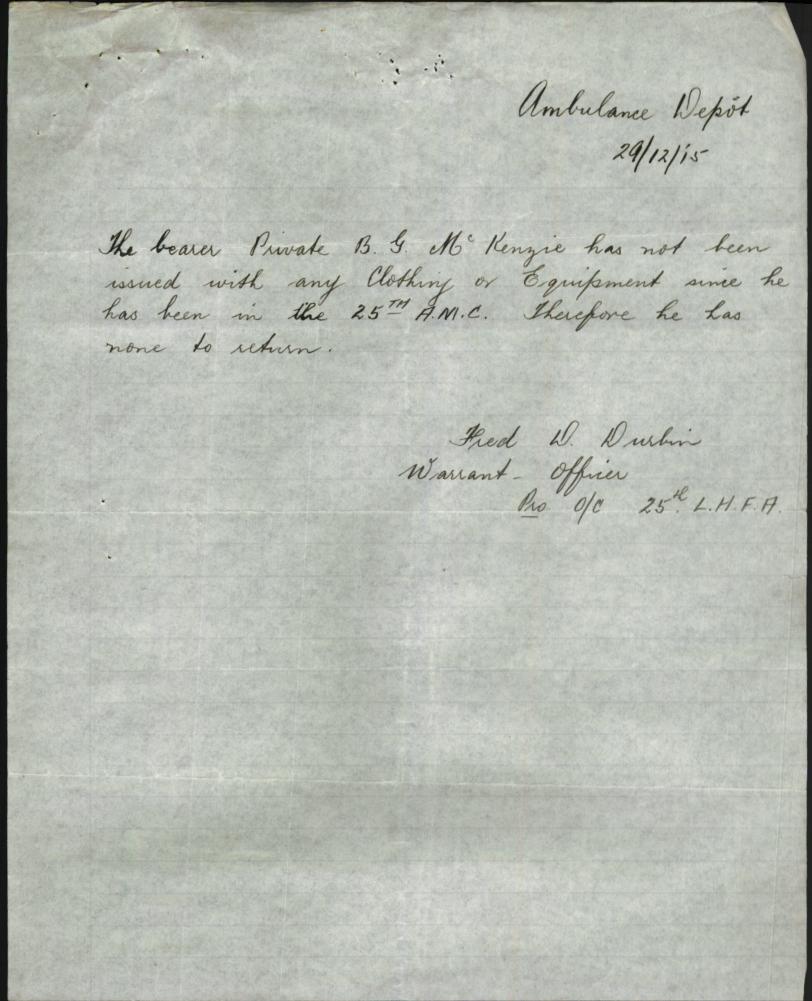 Ambulance Depôt
29/12/15
The bearer Private B. G. Mc Kenzie has not been
issued with any Clothing or Equipment since he
has been in the 25TH A.M.C. Therefore he has
none to return.
Fred D. Durbin
Warrant - Officer
Pro O/C 25th. L.H.F.A.